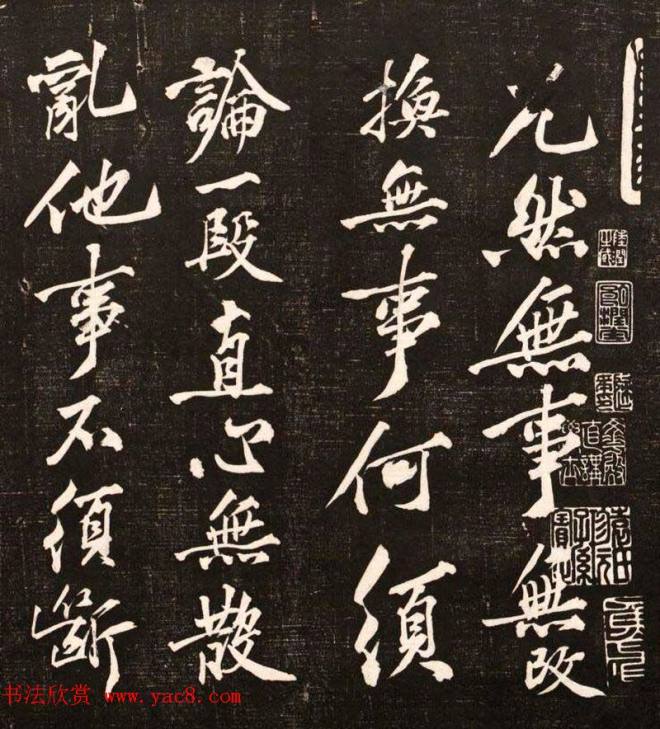 兀然無事無改
換無事何須
論一段直心無散
亂他事不須斷
书法欣赏 www.yac8.com